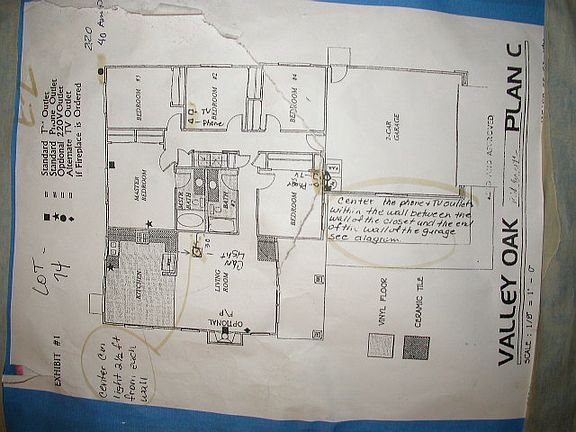 VALLEY OAK PLAN C
SCALE : 1/8" = 1' - 0"
EXHIBIT #1
LOT - 74
Standard TV Outlet
Standard Phone Outlet
Optional 220V Outlet
Alternate TV Outlet
if Fireplace is Ordered
220
40 Amp
BEDROOM #3
BEDROOM #2
BEDROOM #4
TV
Phone
2-CAR
GARAGE
MASTER
BEDROOM
BATH
BATH
BEDROOM
TV
Phone
KITCHEN
Can
Light
LIVING
ROOM
OPTIONAL
F/P
Center the phone & TV outlets
within the wall between the
wall of the closet and the end
of the wall of the garage
see diagram
Center Can
light 2 1/2 ft
from each
wall
VINYL FLOOR
CERAMIC TILE